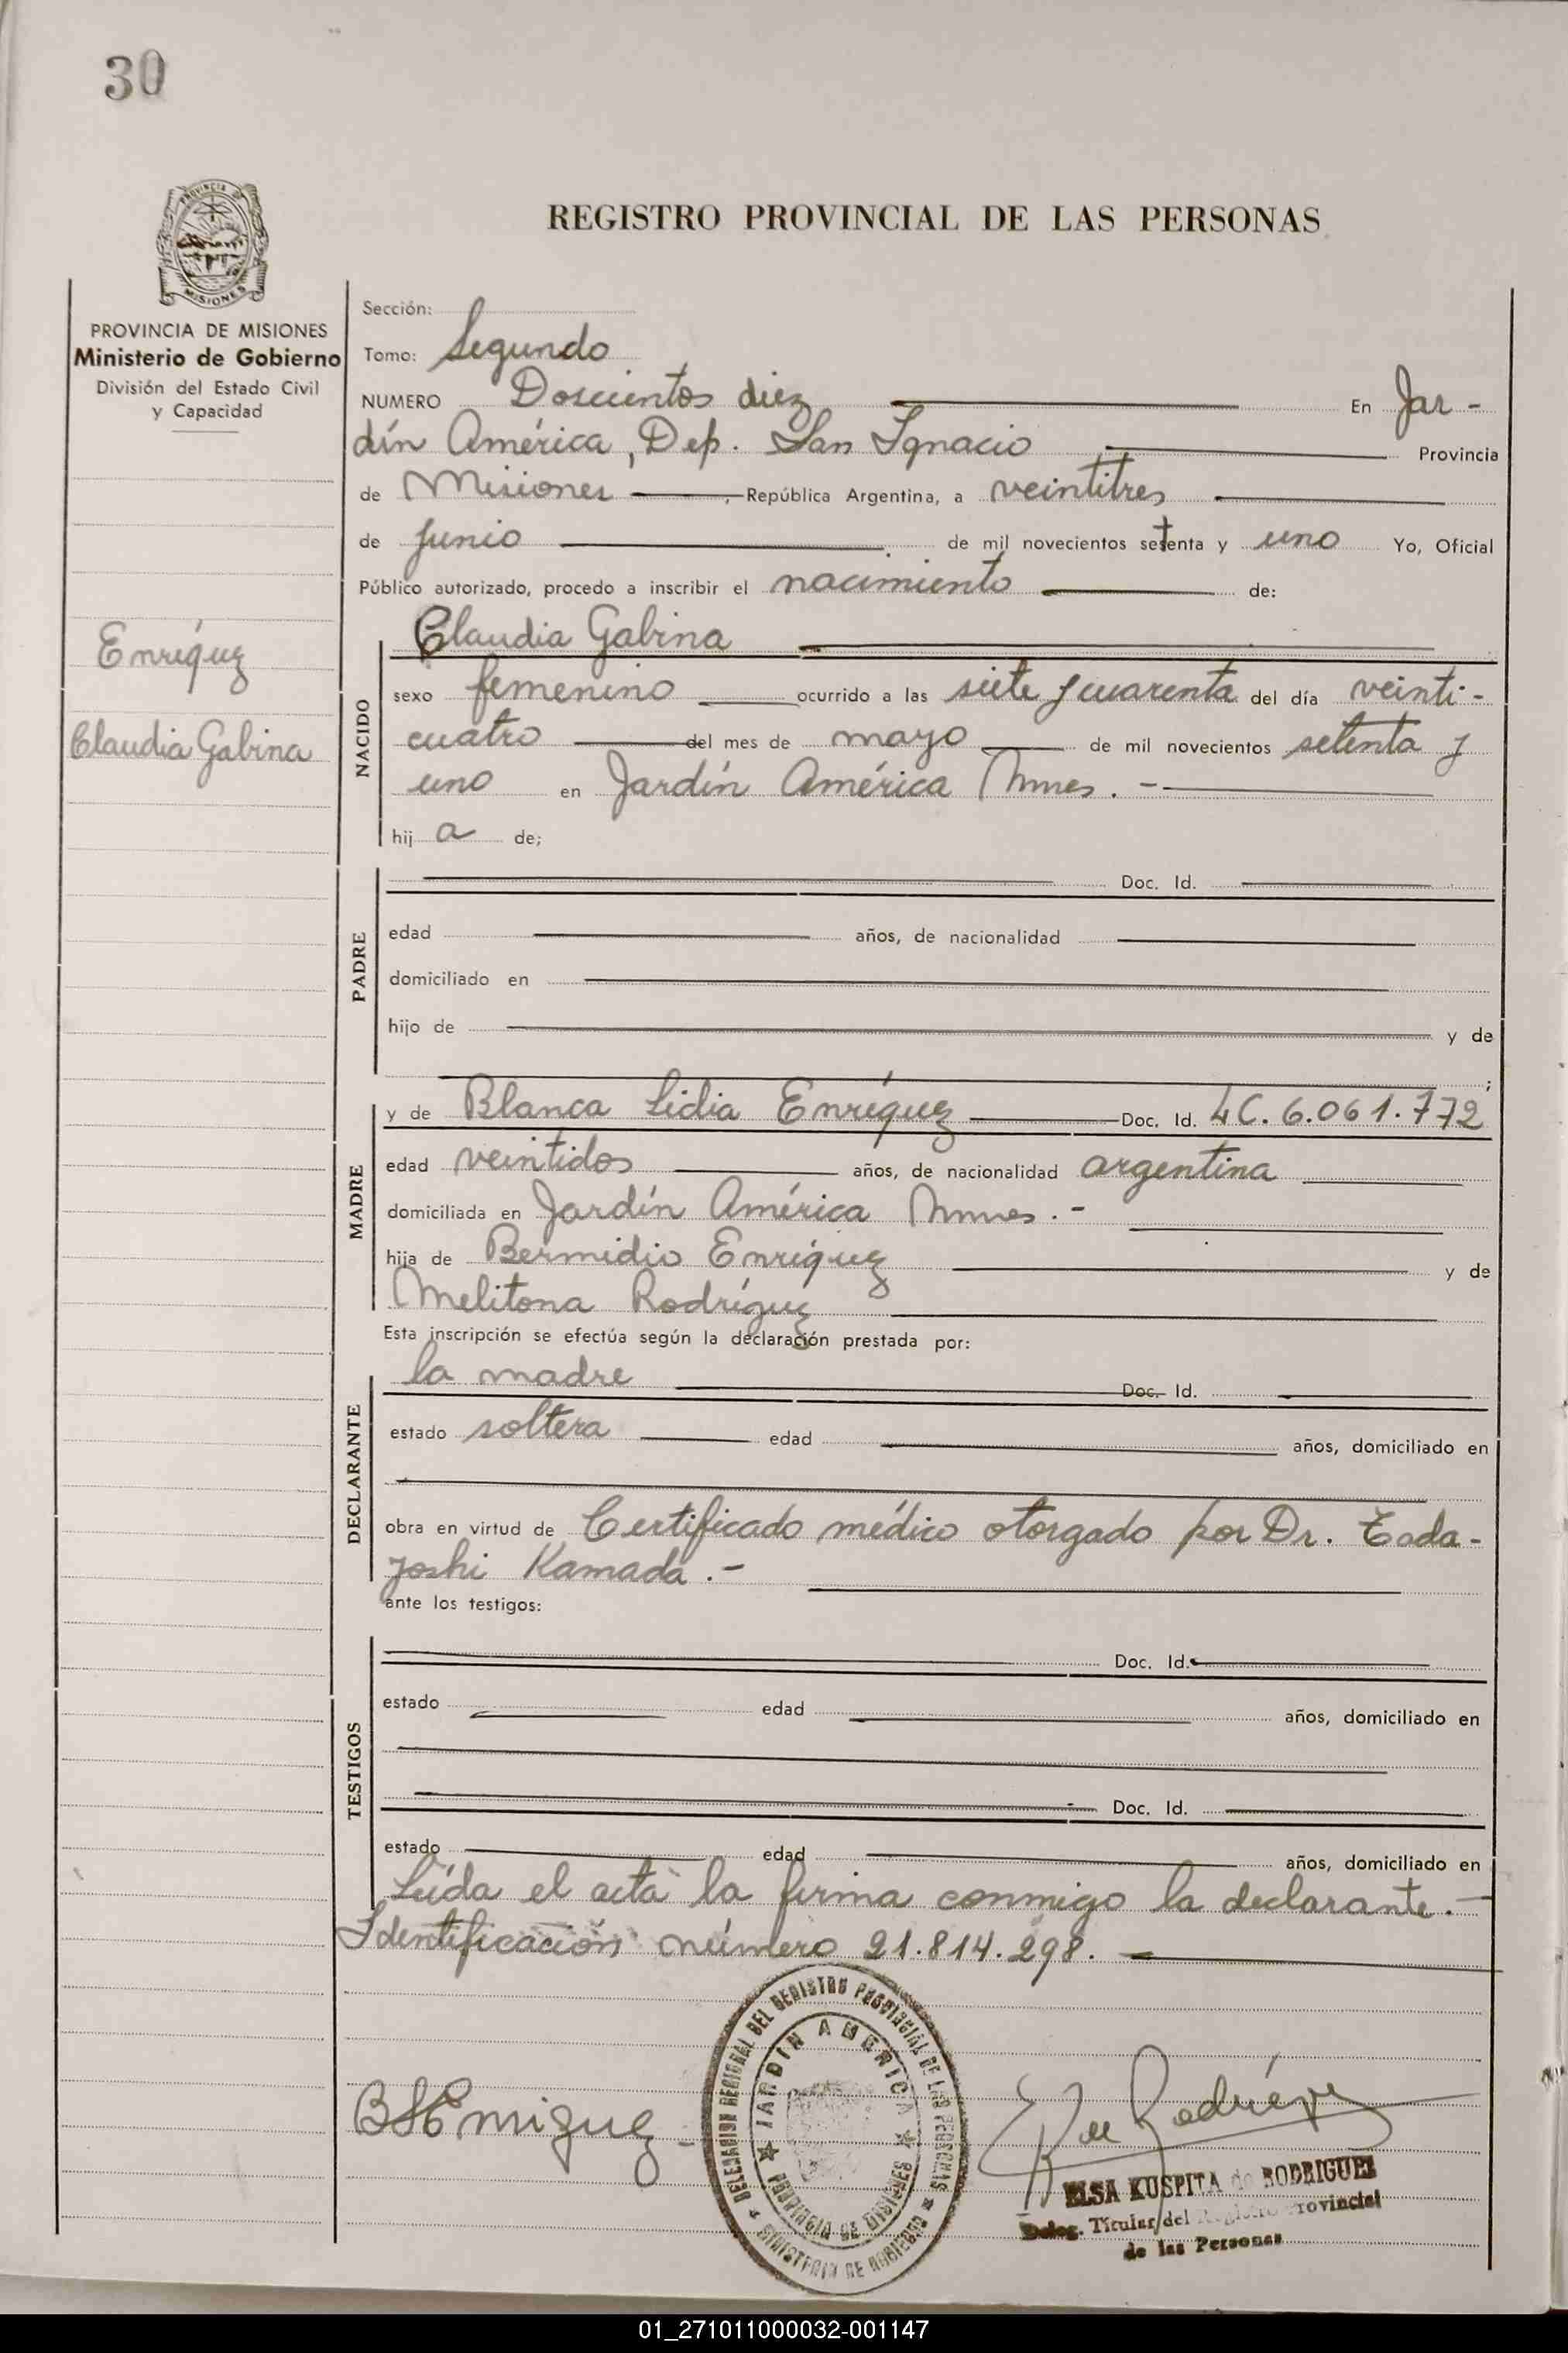 30
PROVINCIA DE
MISIONES
REGISTRO PROVINCIAL DE LAS PERSONAS
PROVINCIA DE MISIONES
Ministerio de Gobierno
División del Estado Civil
y Capacidad
Enríquez
Claudia Gabina
Sección:
Tomo: Segundo
NUMERO Doscientos diez En Jar-
dín América, Dep. San Ignacio Provincia
de Misiones, República Argentina, a veintitres
de junio de mil novecientos setenta y uno Yo, Oficial
Público autorizado, procedo a inscribir el nacimiento de:
Claudia Gabina
NACIDO
sexo femenino ocurrido a las siete y cuarenta del día veinti-
cuatro del mes de mayo de mil novecientos setenta y
uno en Jardín América Mnes. -
hij a de;
PADRE
Doc. Id.
edad años, de nacionalidad
domiciliado en
hijo de y de
;
MADRE
y de Blanca Lidia Enríquez Doc. Id. LC. 6.061.772
edad veintidos años, de nacionalidad argentina
domiciliada en Jardín América Mnes. -
hija de Bermidio Enríquez y de
Melitona Rodríguez
Esta inscripción se efectúa según la declaración prestada por:
DECLARANTE
la madre Doc. Id.
estado soltera edad años, domiciliado en
obra en virtud de Certificado médico otorgado por Dr. Tada-
yoshi Kamada. -
ante los testigos:
TESTIGOS
Doc. Id.
estado edad años, domiciliado en
Doc. Id.
estado edad años, domiciliado en
Leída el acta la firma conmigo la declarante. -
Identificación número 21.814.298. -
DELEGACION REGIONAL DEL REGISTRO PROVINCIAL DE LAS PERSONAS
MINISTERIO DE GOBIERNO
JARDIN AMERICA
PROVINCIA DE MISIONES
ELSA KUSPITA de RODRIGUEZ
Deleg. Titular del Registro Provincial
de las Personas
01_271011000032-001147